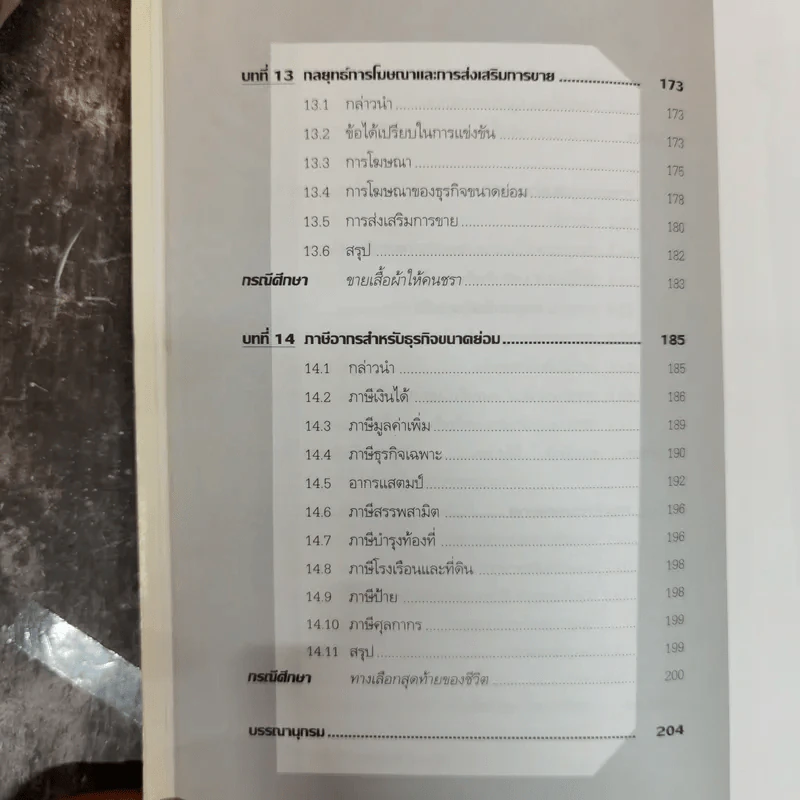 บทที่ 13 กลยุทธ์การโฆษณาและการส่งเสริมการขาย 173
13.1 กล่าวนำ 173
13.2 ข้อได้เปรียบในการแข่งขัน 173
13.3 การโฆษณา 175
13.4 การโฆษณาของธุรกิจขนาดย่อม 178
13.5 การส่งเสริมการขาย 180
13.6 สรุป 182
กรณีศึกษา ขายเสื้อผ้าให้คนชรา 183
บทที่ 14 ภาษีอากรสำหรับธุรกิจขนาดย่อม 185
14.1 กล่าวนำ 185
14.2 ภาษีเงินได้ 186
14.3 ภาษีมูลค่าเพิ่ม 189
14.4 ภาษีธุรกิจเฉพาะ 190
14.5 อากรแสตมป์ 192
14.6 ภาษีสรรพสามิต 196
14.7 ภาษีบำรุงท้องที่ 196
14.8 ภาษีโรงเรือนและที่ดิน 198
14.9 ภาษีป้าย 198
14.10 ภาษีศุลกากร 199
14.11 สรุป 199
กรณีศึกษา ทางเลือกสุดท้ายของชีวิต 200
บรรณานุกรม 204